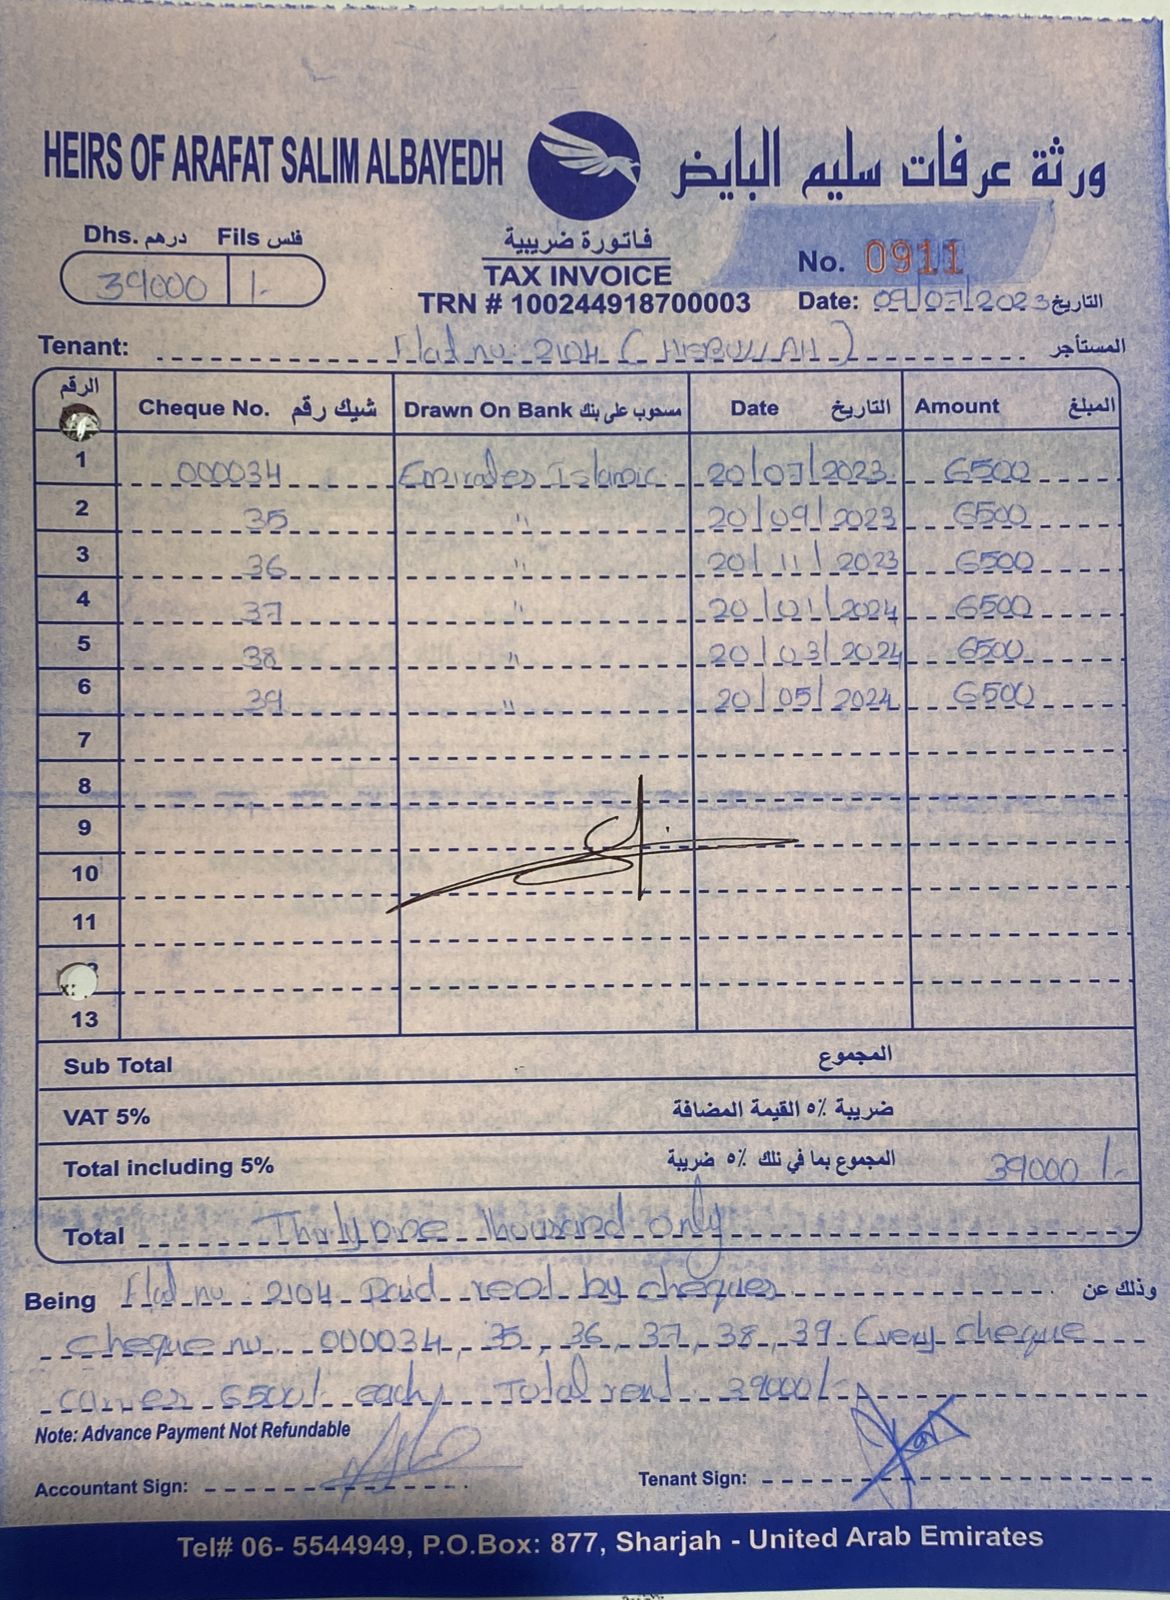 HEIRS OF ARAFAT SALIM ALBAYEDH
ورثة عرفات سليم البايض
Dhs. درهم Fils فلس
39000 /-
فاتورة ضريبية
TAX INVOICE
TRN # 100244918700003
No. 0911
Date: 09/07/2023 التاريخ
Tenant: Flat no: 2104 ( HIEBULLAH ) المستأجر
الرقم Cheque No. شيك رقم Drawn On Bank مسحوب على بنك Date التاريخ Amount المبلغ
1 000034 Emirates Islamic 20/07/2023 6500
2 35 " 20/09/2023 6500
3 36 " 20/11/2023 6500
4 37 " 20/01/2024 6500
5 38 " 20/03/2024 6500
6 39 " 20/05/2024 6500
7
8
9
10
11
13
Sub Total المجموع
VAT 5% ضريبة ٥٪ القيمة المضافة
Total including 5% المجموع بما في ذلك ٥٪ ضريبة 39000 /-
Total thousand only
Being Flat no: 2104 Paid rent by cheques وذلك عن
cheque no. 000034, 35, 36, 37, 38, 39. Every cheque
carries 6500/- each Total rent 39000/-
Note: Advance Payment Not Refundable
Accountant Sign:
Tenant Sign:
Tel# 06- 5544949, P.O.Box: 877, Sharjah - United Arab Emirates